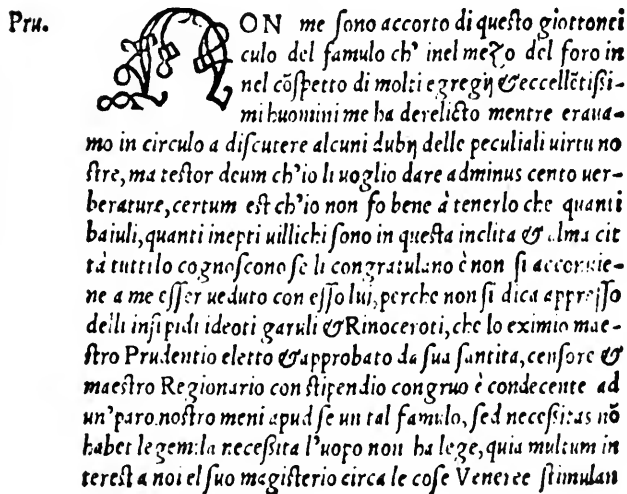 Pru. NON me ſono accorto di queſto giottonti
culo del famulo ch' inel mezo del foro in
nel cõſpetto di molti egregij & eccellẽtißi-
mi huomini me ha derelicto mentre eraua-
mo in circulo a diſcutere alcuni dubij delle peculiali uirtu no
ſtre, ma teſtor deum ch'io li uoglio dare adminus cento uer-
berature, certum eſt ch'io non fo bene à tenerlo che quanti
baiuli, quanti inepti uillichi ſono in queſta inclita & alma cit
tà tutti lo cognoſcono ſe li congratulano è non ſi acconuie-
ne a me eſſer ueduto con eſſo lui, perche non ſi dica appreſſo
delli inſipidi ideoti garuli & Rinoceroti, che lo eximio mae-
ſtro Prudentio eletto & approbato da ſua ſantita, cenſore &
maeſtro Regionario con ſtipendio congruo è condecente ad
un'paro noſtro meni apud ſe un tal famulo, ſed neceßitas nõ
habet legem: la neceßita l'uopo non ha lege, quia multum in
tereſt a noi el ſuo magiſterio circa le coſe Veneree ſtimulan